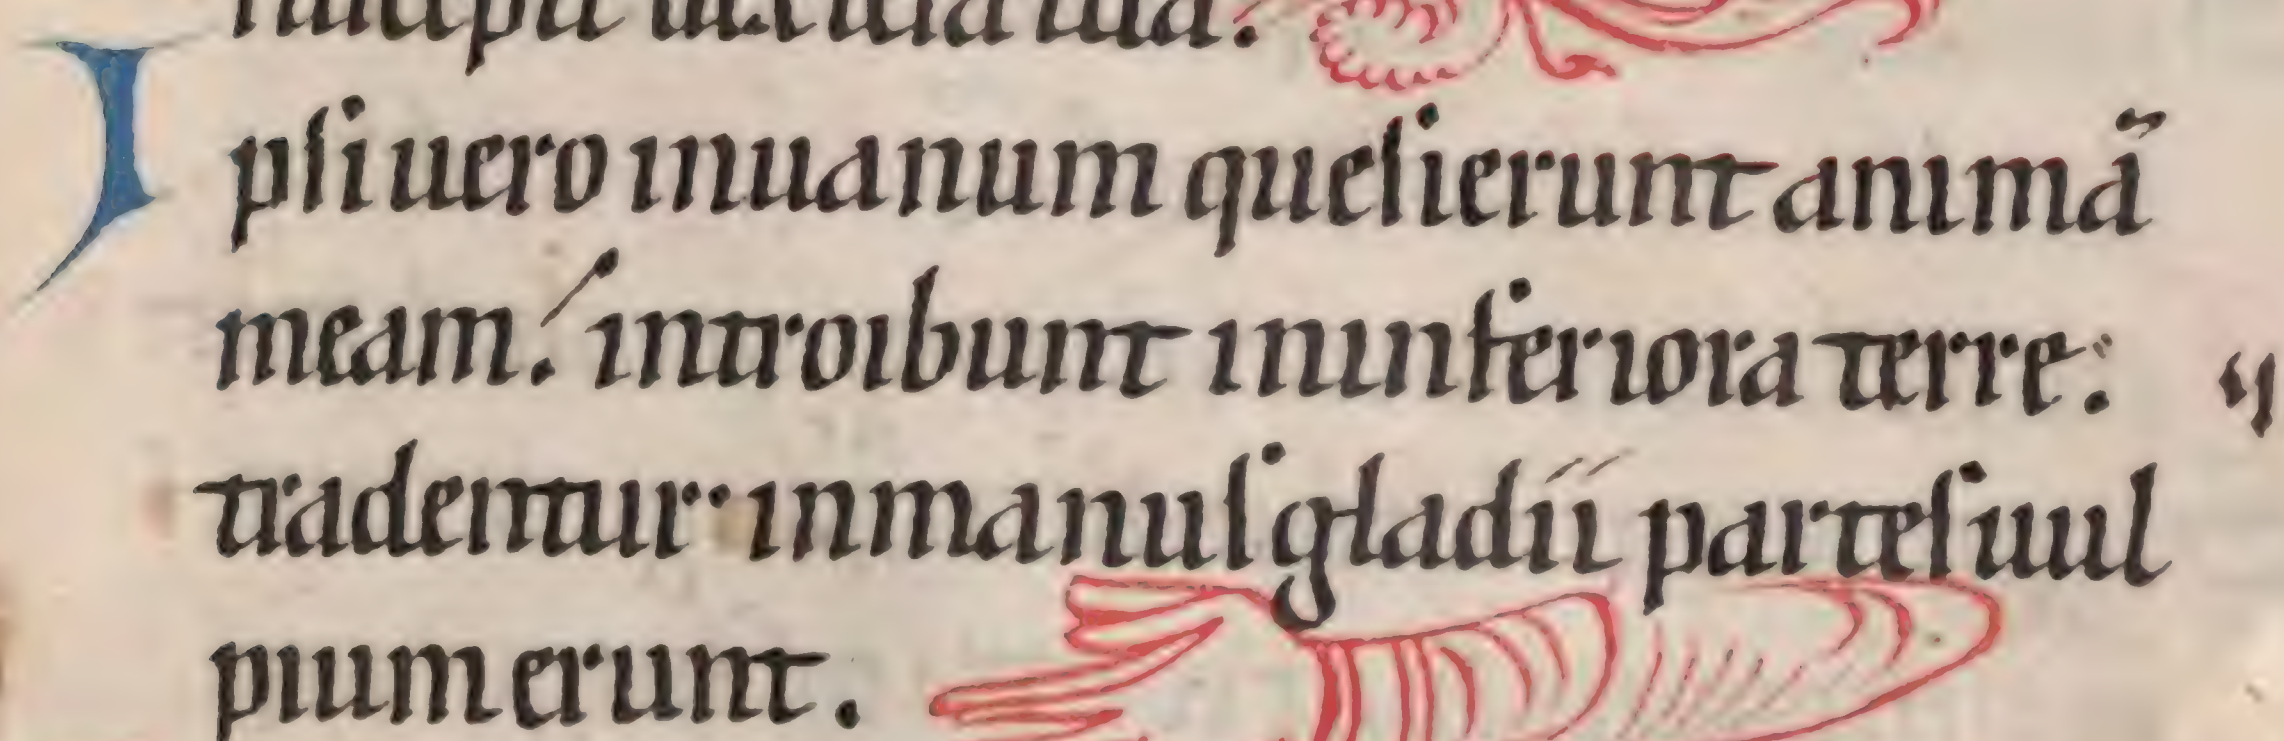 suscepit dextera tua:
Ipsi uero inuanum quesierunt animā
meam. introibunt ininferiora terre:
tradentur inmanus gladii partes uul
pium erunt.